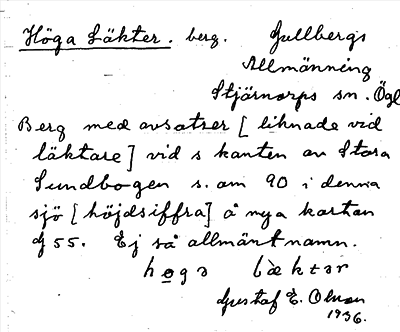 Höga Läkter. berg. Gullbergs
Allmänning
Stjärnorps sn. Ögl
Berg med avsatser [liknade vid
läktare] vid s kanten av Stora
Sundbogen s. om 90 i denna
sjö [höjdsiffra] å nya kartan
G 55. Ej så allmänt namn.
høgə læktər
Gustaf E. Olsson
1936.